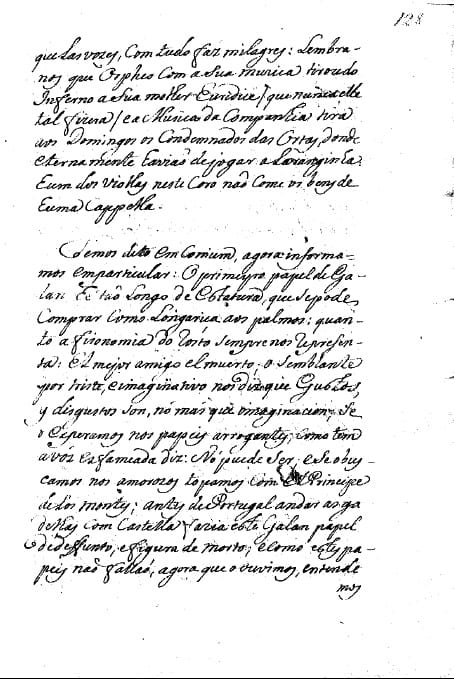 128
que las vozes, Com tudo faz milagres: Lembra-
nos que Orpheo Com a Sua muzica tirou do
Inferno a Sua molher Euridice / que nunca elle
tal fizera / e a Muzica da Companhia tira
aos Domingos os Condemnados das Ortas, donde
eternamente de jogar a Laranginha
E um dos violas neste Coro não Come os bens de
E uma Cappella.
Temos dito em Comum, agora informa-
mos em particular: O primeyro papel de Ga-
lan he tão Longo de Estatura, que se pode
Comprar Como Longaniça aos palmos: quan-
to a fizionomia do rosto sempre nos reprezen-
ta: El mejor amigo el muerto; o Semblante
por triste, e imaginativo nos diz que Gustos,
y disgustos son, no mas que imaginacion; Se
o esperamos nos papeis arrogantes, Como tem
a vóz diz: No puede Ser; e Se o bus-
camos nos amorozos topamos Com El Principe
de los montes; antes de Portugal andar as ga-
delhas com Castella fazia este Galan papel
de deffunto, e figura de morto; e Como estes pa-
peis não fallaó, agora que o ouvimos, entende
mos